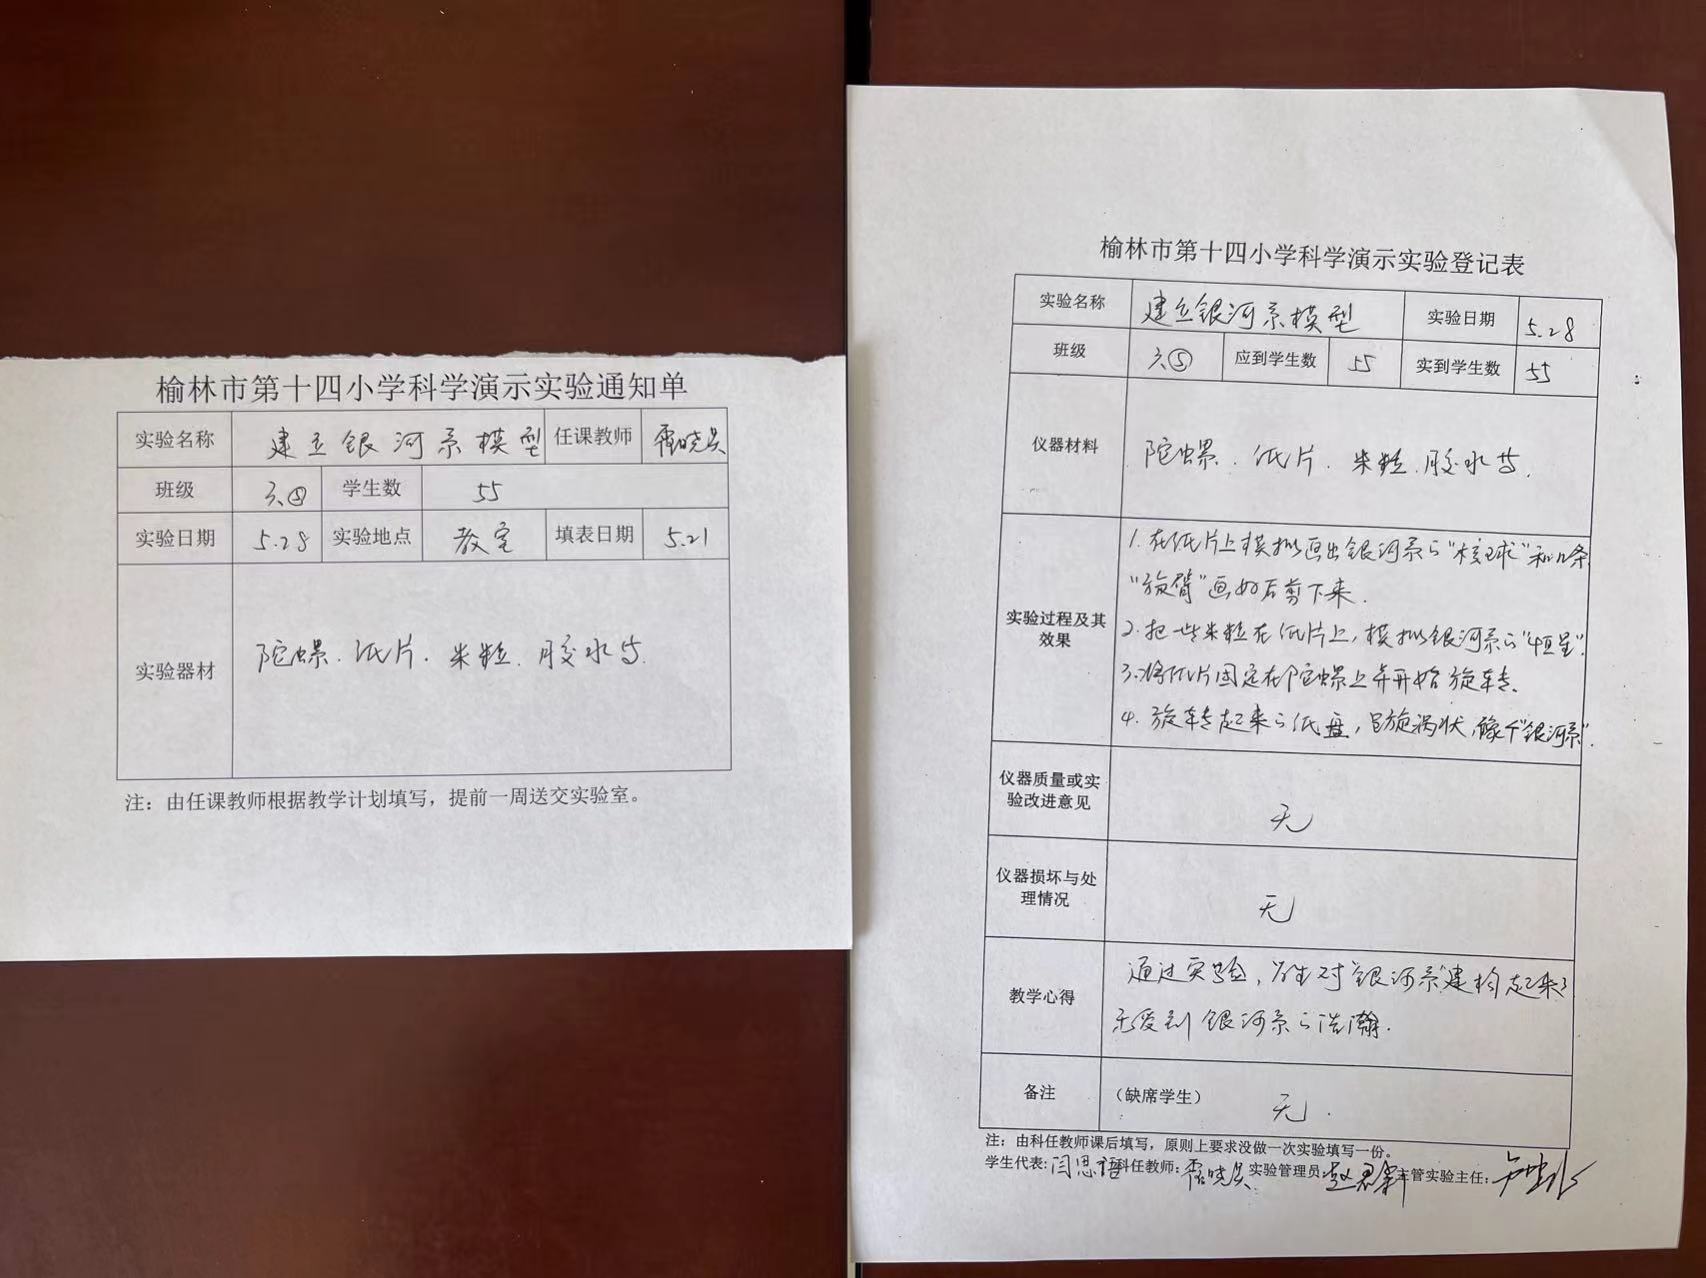 榆林市第十四小学科学演示实验通知单
实验名称 建立银河系模型 任课教师
班级 六⑤ 学生数 55
实验日期 5.28 实验地点 教室 填表日期 5.21
实验器材 陀螺、纸片、米粒、胶水等.
注：由任课教师根据教学计划填写，提前一周送交实验室。
榆林市第十四小学科学演示实验登记表
实验名称 建立银河系模型 实验日期 5.28
班级 六⑤ 应到学生数 55 实到学生数 55
仪器材料 陀螺、纸片、米粒、胶水等.
实验过程及其效果
1.在纸片上模拟画出银河系的“核球”和几条
“旋臂”画好后剪下来.
2.把一些米粒在纸片上，模拟银河系的“恒星”.
3.将纸片固定在陀螺上并开始旋转.
4.旋转起来的纸盘，呈旋涡状，像个“银河系”.
仪器质量或实验改进意见 无
仪器损坏与处理情况 无
教学心得
通过实验，学生对“银河系”建构起来了
感受到银河系的浩瀚.
备注 （缺席学生） 无.
注：由科任教师课后填写，原则上要求没做一次实验填写一份。
学生代表: 闫思语 科任教师: 实验管理员: 主管实验主任: